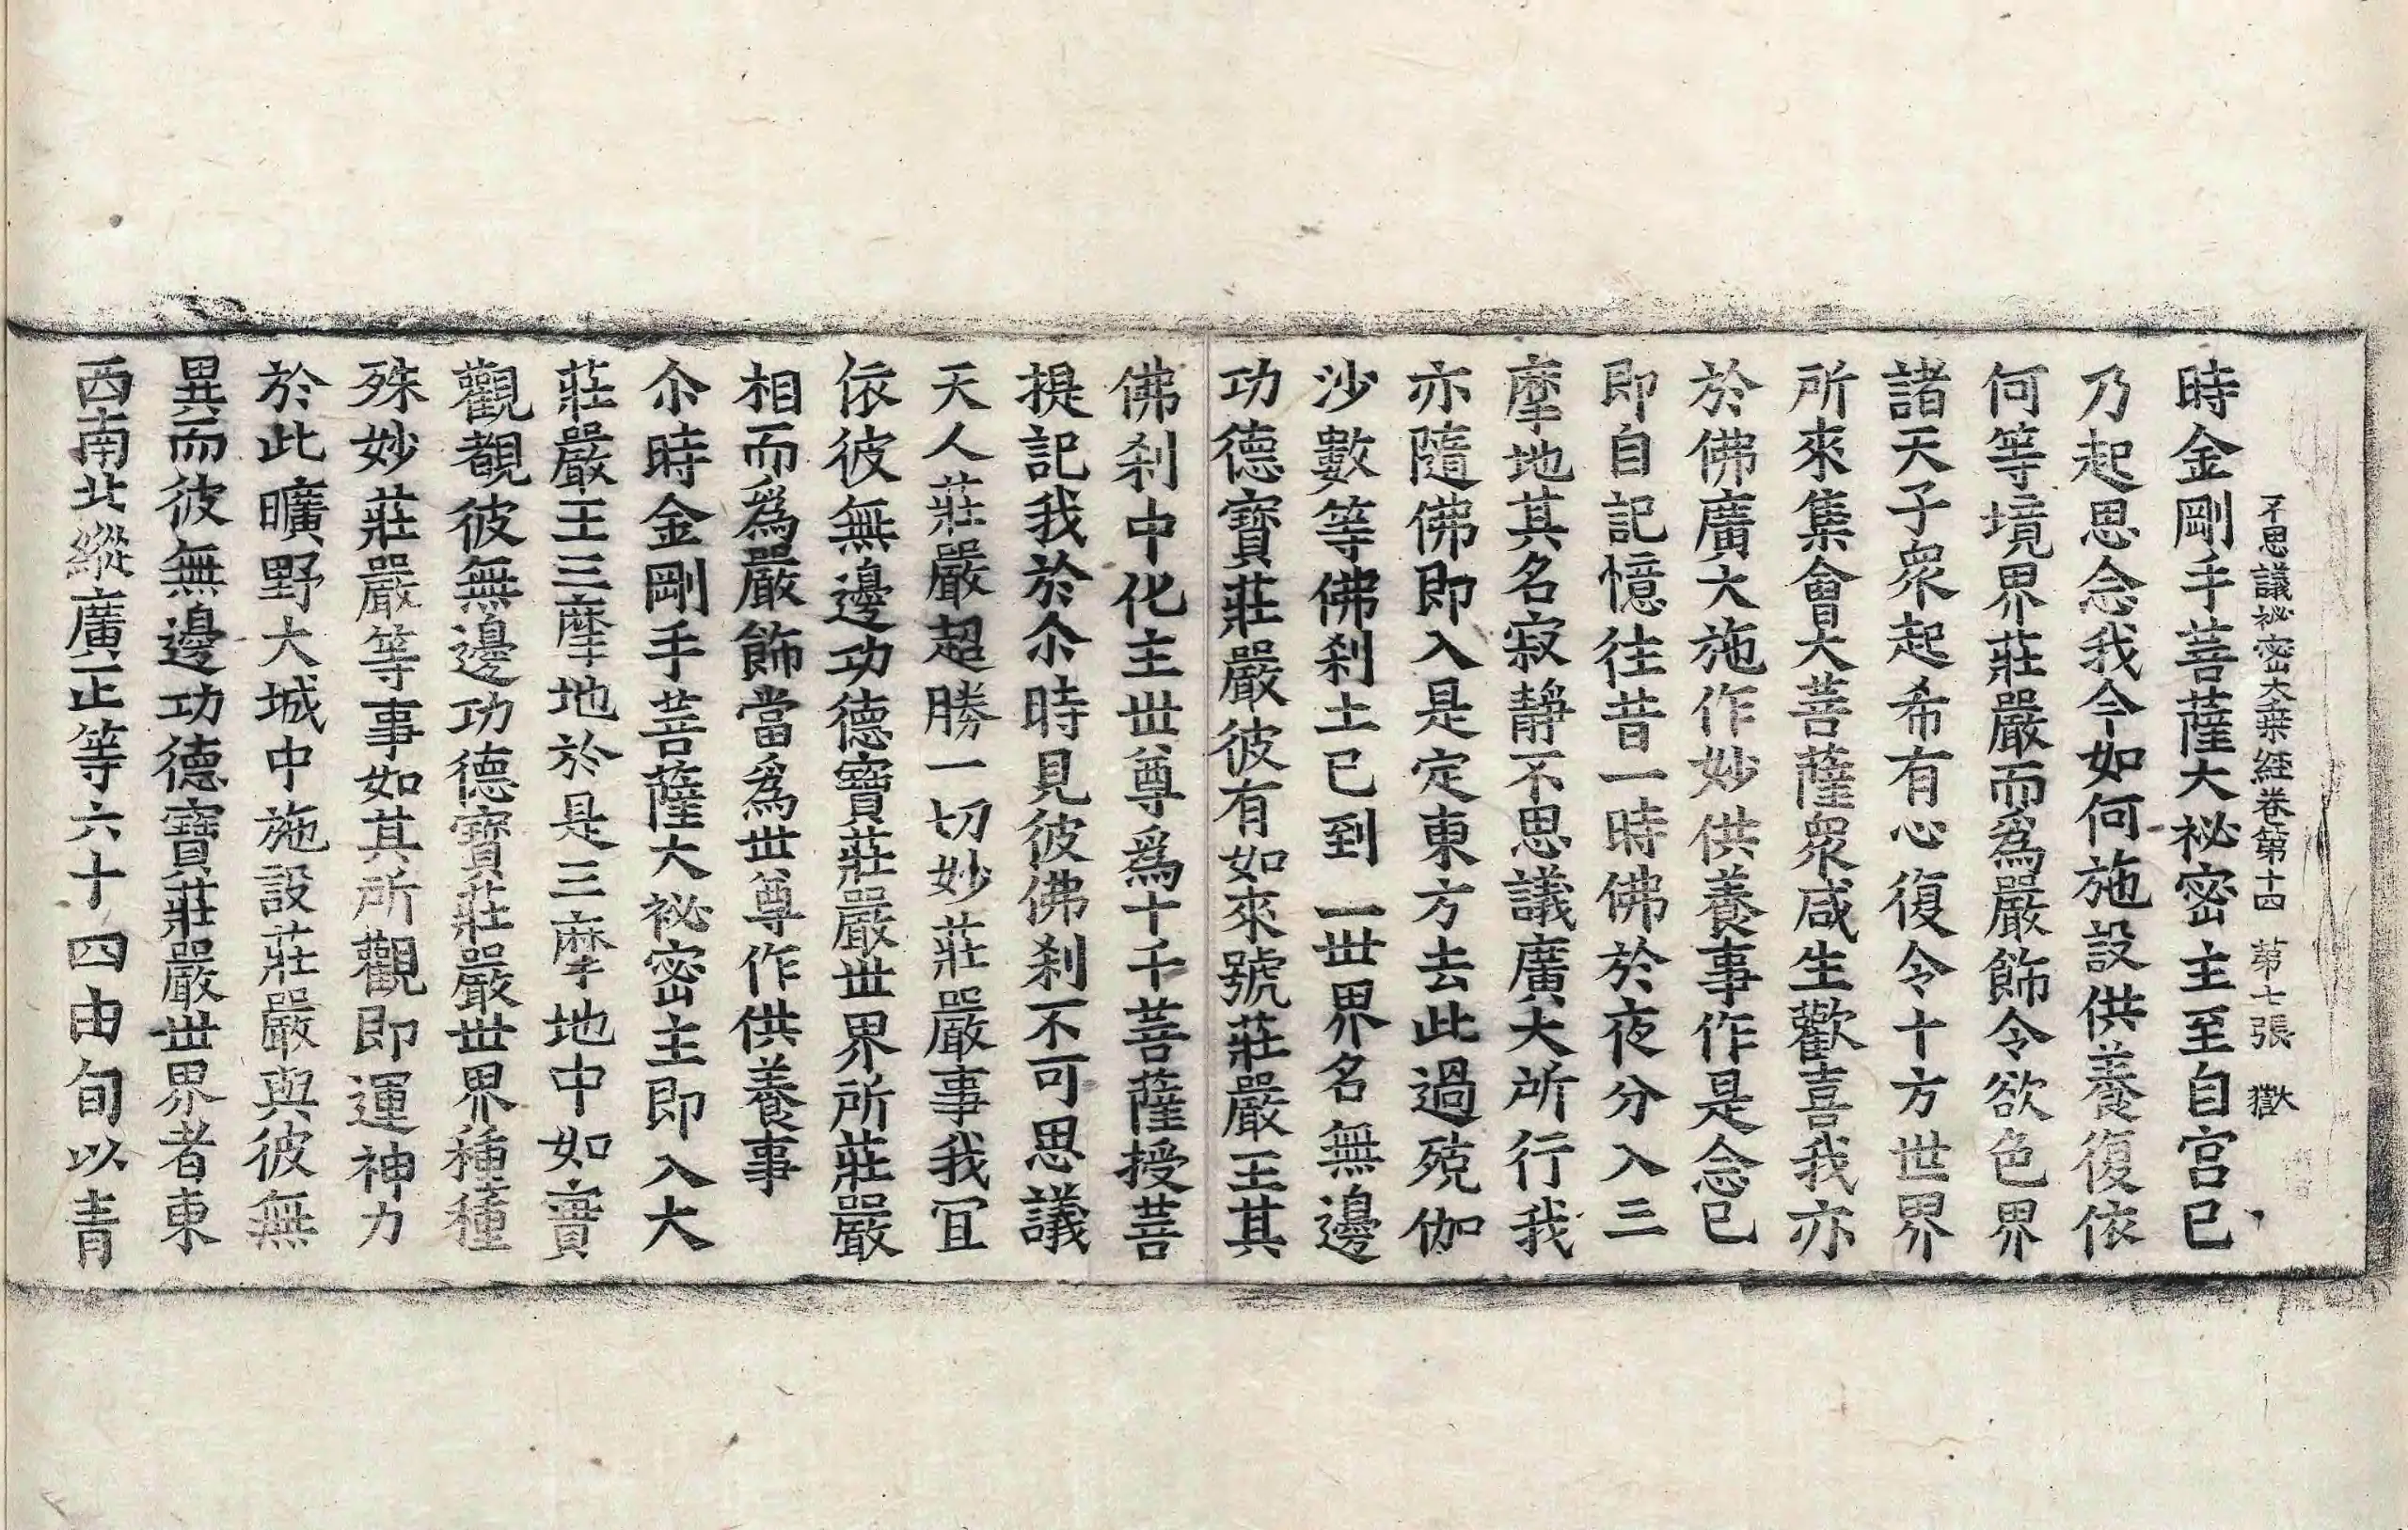 不思議祕密大乗経卷第十四 苐七張 㺉
時金剛手菩薩大祕密主至自宫已
乃起思念我今如何施設供養復依
何等境界莊嚴而爲嚴飾令欲色界
諸天子衆起希有心復令十方世界
所來集會大菩薩衆咸生歡喜我亦
於佛廣大施作妙供養事作是念已
即自記憶往昔一時佛於夜分入三
摩地其名寂靜不思議廣大所行我
亦隨佛即入是定東方去此過殑伽
沙數等佛刹土已到一世界名無邊
功德寶莊嚴彼有如來號莊嚴王其
佛刹中化主丗尊爲十千菩薩授菩
提記我於尒時見彼佛刹不可思議
天人莊嚴超勝一切妙莊嚴事我冝
依彼無邊功德寶莊嚴丗界所莊嚴
相而爲嚴飾當爲丗尊作供養事
尒時金剛手菩薩大祕密主即入大
莊嚴王三摩地於是三摩地中如實
觀覩彼無邊功德寶莊嚴丗界種種
殊妙莊嚴等事如其所觀即運神力
於此曠野大城中施設莊嚴與彼無
異而彼無邊功德寶莊嚴丗界者東
西南北縱廣正等六十四由旬以青